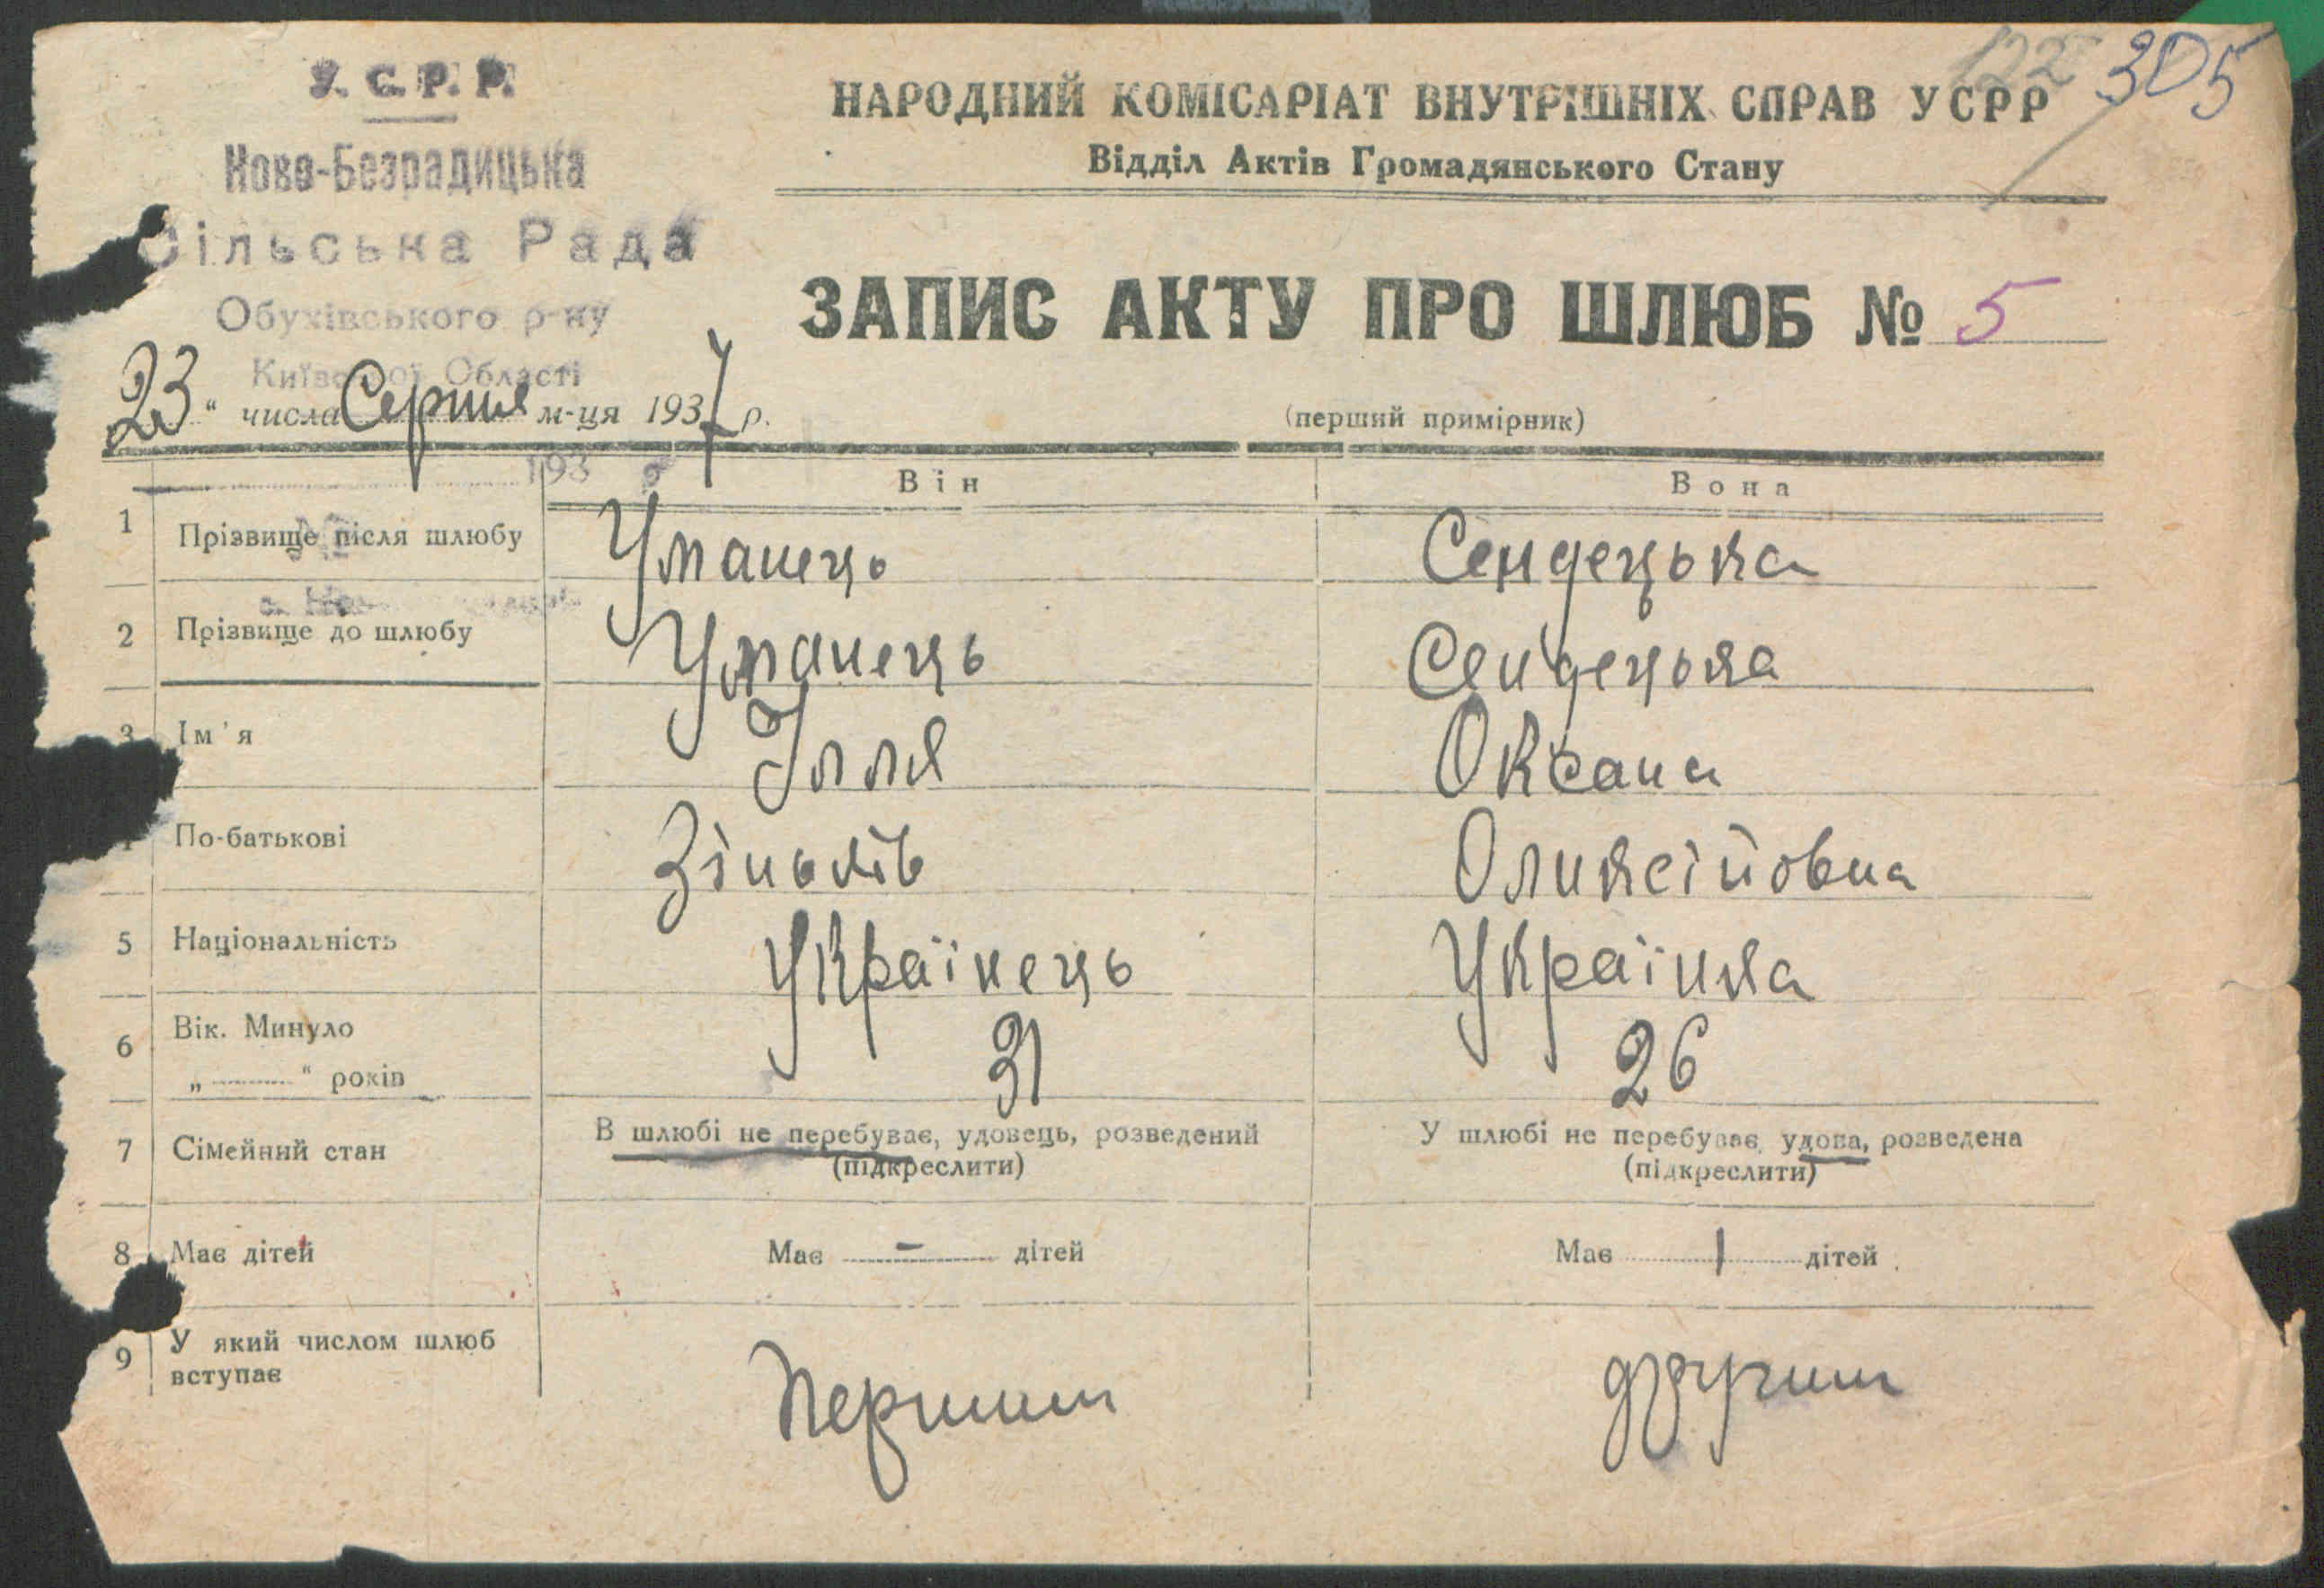 122 305
У. С. Р. Р.
Ново-Безрадицька
Сільська Рада
Обухівського р-ну
Київської Області
НАРОДНИЙ КОМІСАРІАТ ВНУТРІШНІХ СПРАВ УСРР
Відділ Актів Громадянського Стану
ЗАПИС АКТУ ПРО ШЛЮБ № 5
23 " числа Серпня м-ця 1937 р.
(перший примірник)
193 р
Він Вона
1 Прізвище після шлюбу Уманець Сендецька
2 Прізвище до шлюбу Уманець Сендецька
3 Ім'я Ілля Оксана
По-батькові Зіньків Оликсійовна
5 Національність Українець Українка
6 Вік. Минуло
„ “ років 31 26
7 Сімейний стан В шлюбі не перебуває, удовець, розведений У шлюбі не перебуває, удова, розведена
(підкреслити) (підкреслити)
8 Має дітей Має - дітей Має 1 дітей
9 У який числом шлюб
вступає Першим другим